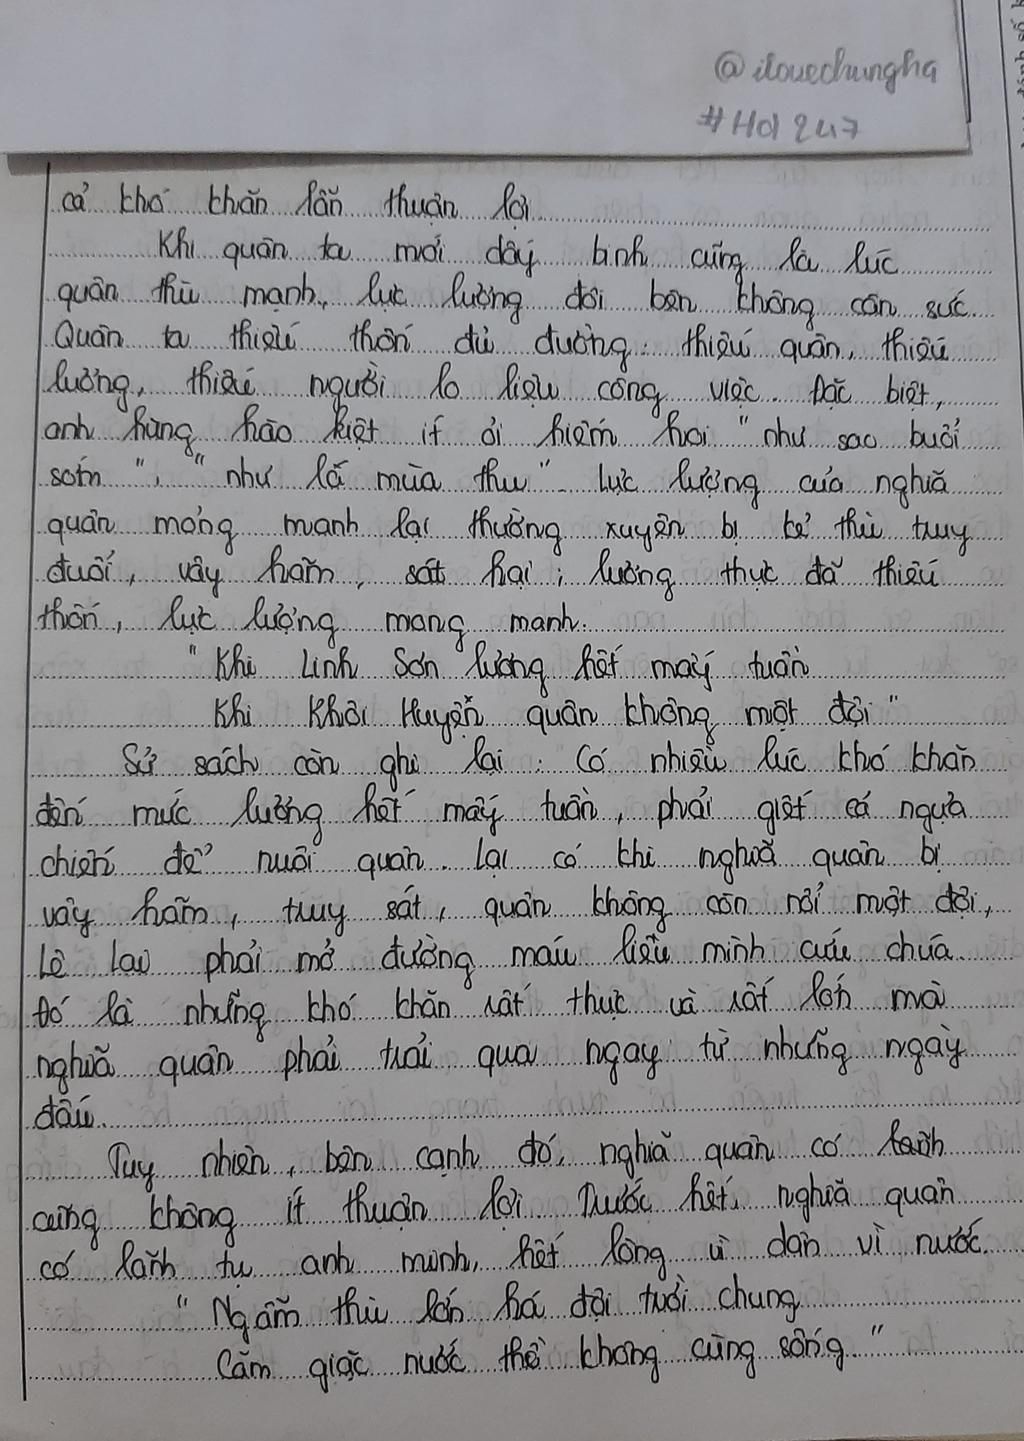 @ilovechungha
#Hd 247
cả khó khăn lẫn thuận lợi.
Khi quân ta mới dấy binh cũng là lúc
quân thù mạnh, lực lượng đôi bên không cân sức.
Quân ta thiếu thốn đủ đường: thiếu quân, thiếu
lương, thiếu người lo liệu công việc. Đặc biệt,
anh hùng hào kiệt ít ỏi hiếm hoi "như sao buổi
sớm", "như lá mùa thu". Lực lượng của nghĩa
quân mỏng manh lại thường xuyên bị kẻ thù truy
đuổi, vây hãm, sát hại; lương thực đã thiếu
thốn, lực lượng mong manh.
"Khi Linh Sơn lương hết mấy tuần
Khi Khôi Huyện quân không một đội"
Sử sách còn ghi lại: Có nhiều lúc khó khăn
đến mức lương hết mấy tuần, phải giết cả ngựa
chiến để nuôi quân. Lại có khi nghĩa quân bị
vây hãm, truy sát, quân không còn nổi một đội,
Lê Lai phải mở đường máu liều mình cứu chúa.
Đó là những khó khăn rất thực và rất lớn mà
nghĩa quân phải trải qua ngay từ những ngày
đầu.
Tuy nhiên, bên cạnh đó, nghĩa quân có lãnh
cũng không ít thuận lợi. Trước hết, nghĩa quân
có lãnh tụ anh minh, hết lòng vì dân vì nước.
"Ngẫm thù lớn há đội trời chung
Căm giặc nước thề không cùng sống."